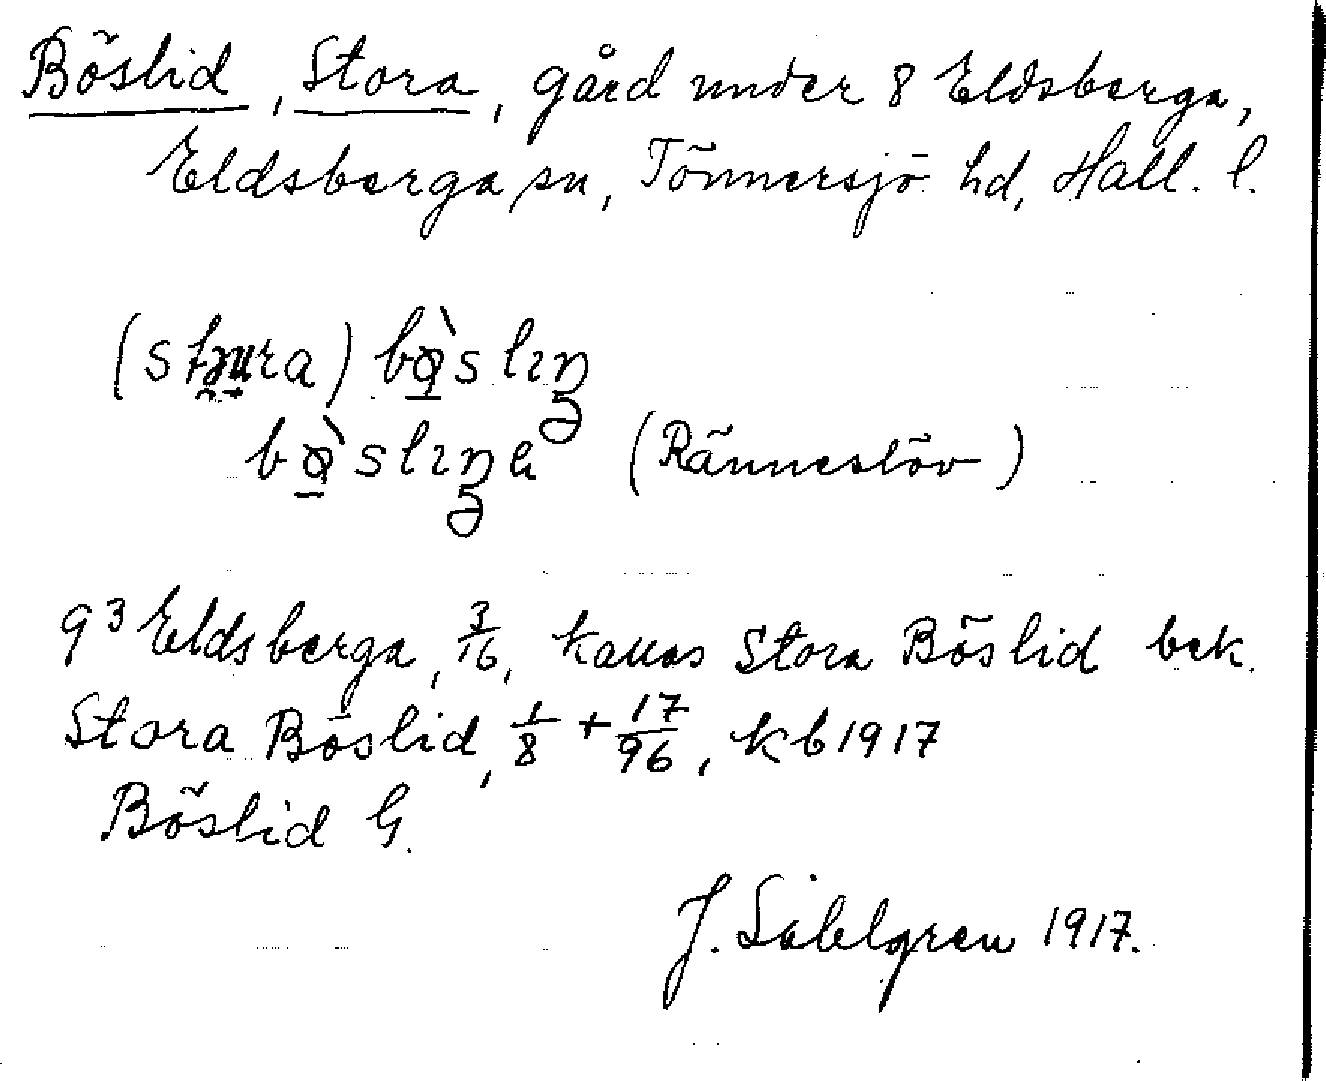 Böslid, Stora, gård under 8 Eldsberga,
Eldsberga sn, Tönnersjö hd, Hall. l.
(Ränneslöv)
9³ Eldsberga, 3/16, kallas Stora Böslid bek.
Stora Böslid, 1/8 + 17/96, kb 1917
Böslid G.
J. Sahlgren 1917.